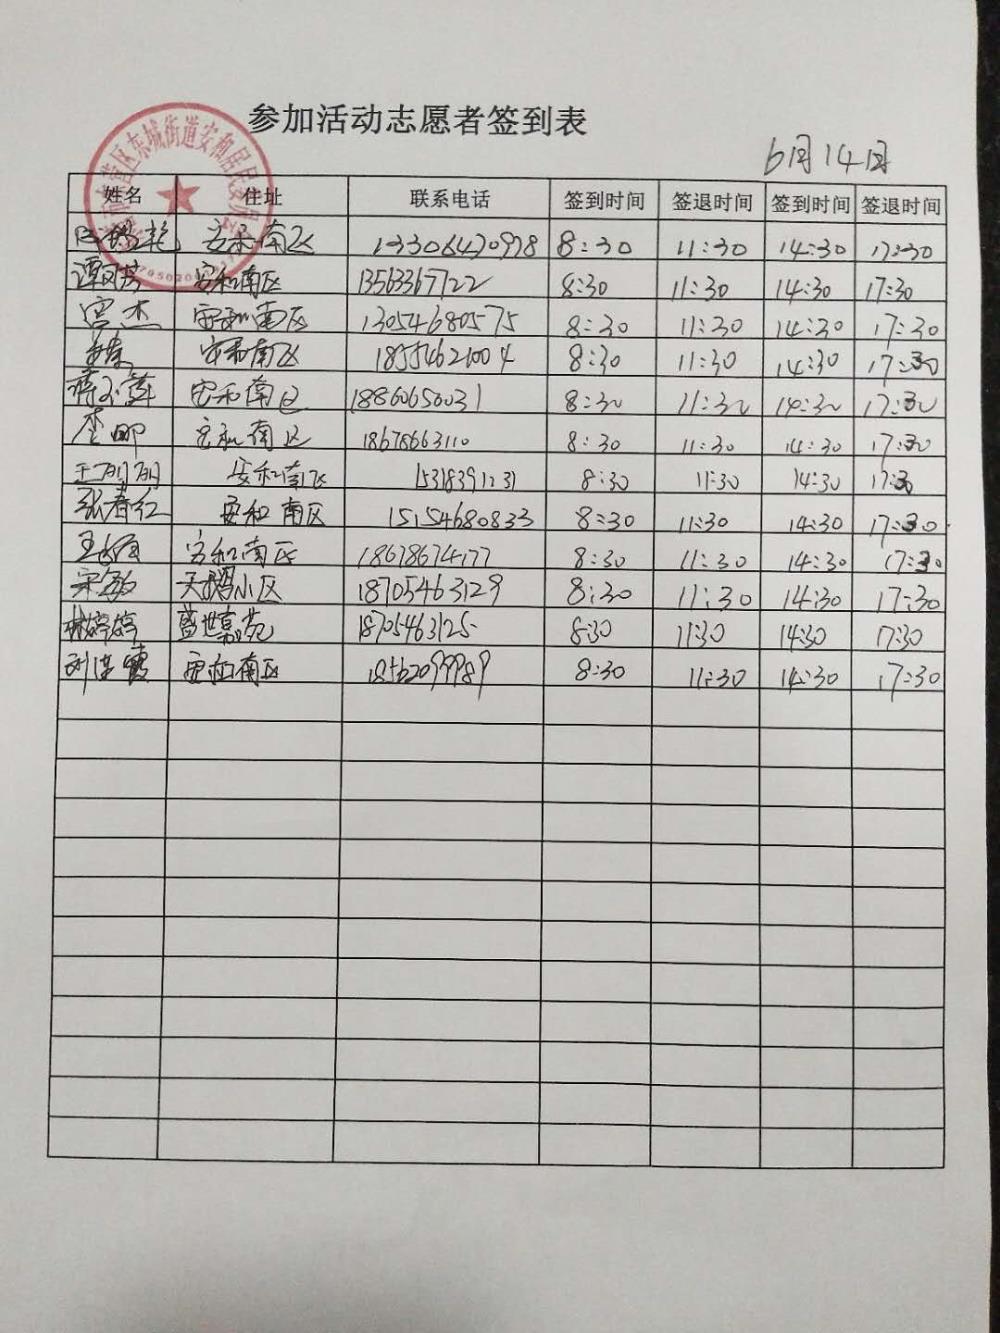 参加活动志愿者签到表
6月14日
东城街道安和居民委员会
姓名 住址 联系电话 签到时间 签退时间 签到时间 签退时间
安和南区 13306420978 8:30 11:30 14:30 17:30
谭凤芳 安和南区 13563367722 8:30 11:30 14:30 17:30
宫杰 安和南区 13054680575 8:30 11:30 14:30 17:30
安和南区 18554621004 8:30 11:30 14:30 17:30
蒋玉萍 安和南区 18860650031 8:30 11:30 14:30 17:30
李娜 安和南区 18678663110 8:30 11:30 14:30 17:30
王丽丽 安和南区 15318391231 8:30 11:30 14:30 17:30
张春红 安和南区 15154680833 8:30 11:30 14:30 17:30
安和南区 18678674177 8:30 11:30 14:30 17:30
宋敏 天鹅小区 18705463129 8:30 11:30 14:30 17:30
林婷婷 盛世嘉苑 18705463125 8:30 11:30 14:30 17:30
刘洪霞 安和南区 18562099989 8:30 11:30 14:30 17:30